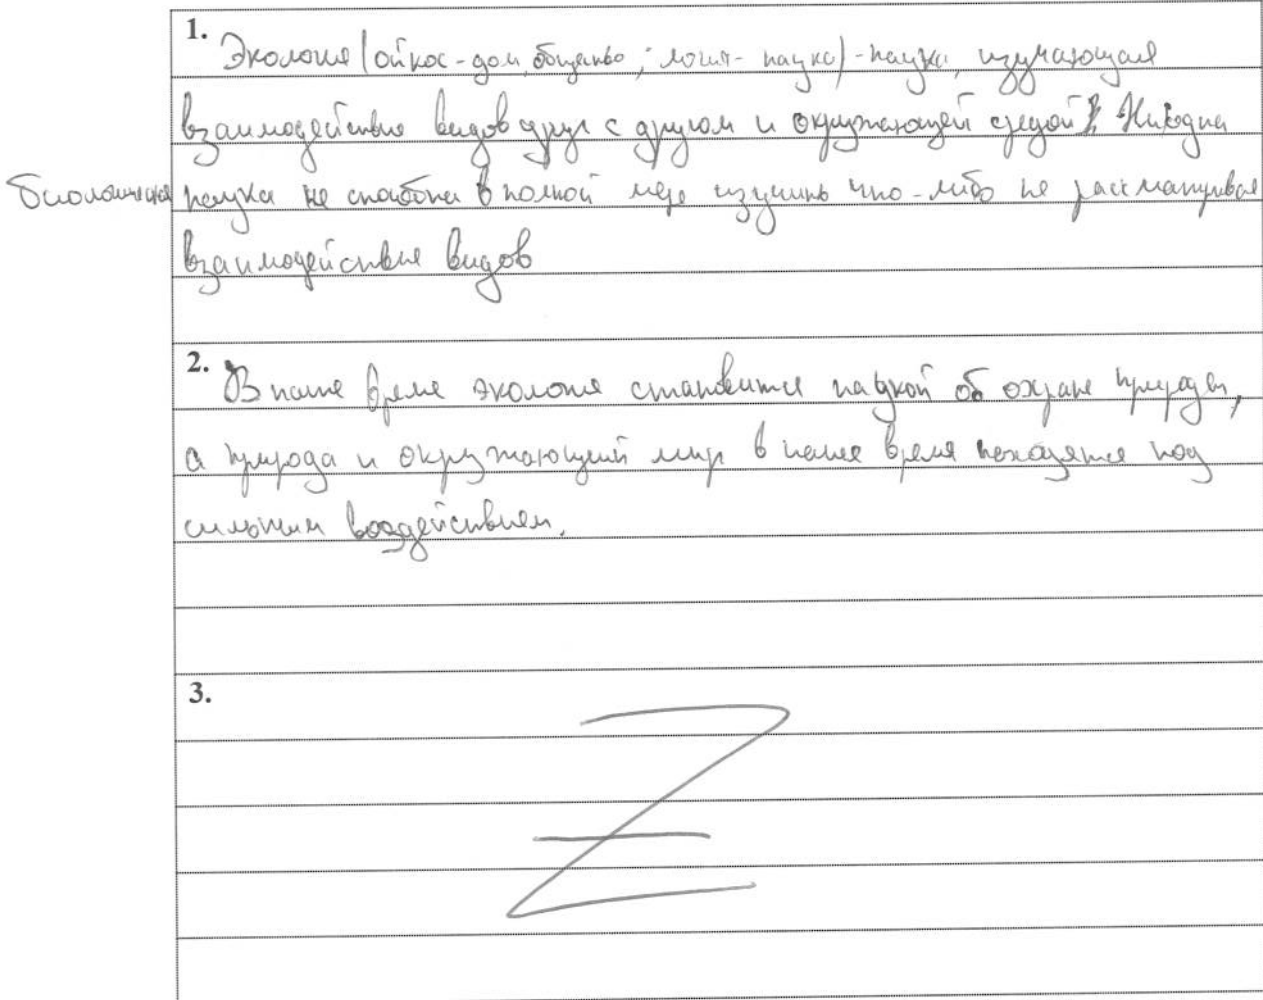 1.
Экология (ойкос-дом, общество; логия- наука)-наука, изучающая
взаимодействие видов друг с другом и окружающей средой. Ни одна
биологическая наука не способна в полной мере изучить что-либо не рассматривая
взаимодействия видов
2. В наше время экология становится наукой об охране природы,
а природа и окружающий мир в наше время находятся под
сильным воздействием.
3.
Z